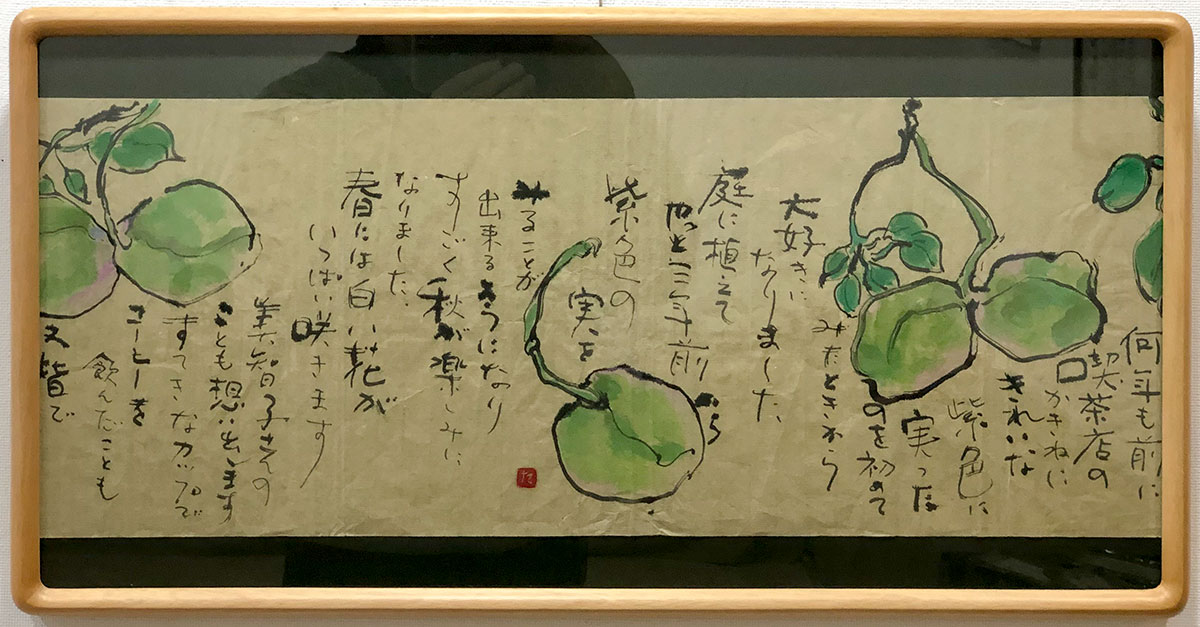 何年も前に
喫茶店の
かきねに
きれいな
紫色に
実った
のを初めて
みたときから
大好きに
なりました
庭に植えて
やっと三年前から
紫色の
実を
みることが
出来るようになり
すごく秋が楽しみに
なりました
春には白い花が
いっぱい咲きます
美智子さんの
ことも想い出します
すてきなカップで
コーヒーを
飲んだことも
又皆で